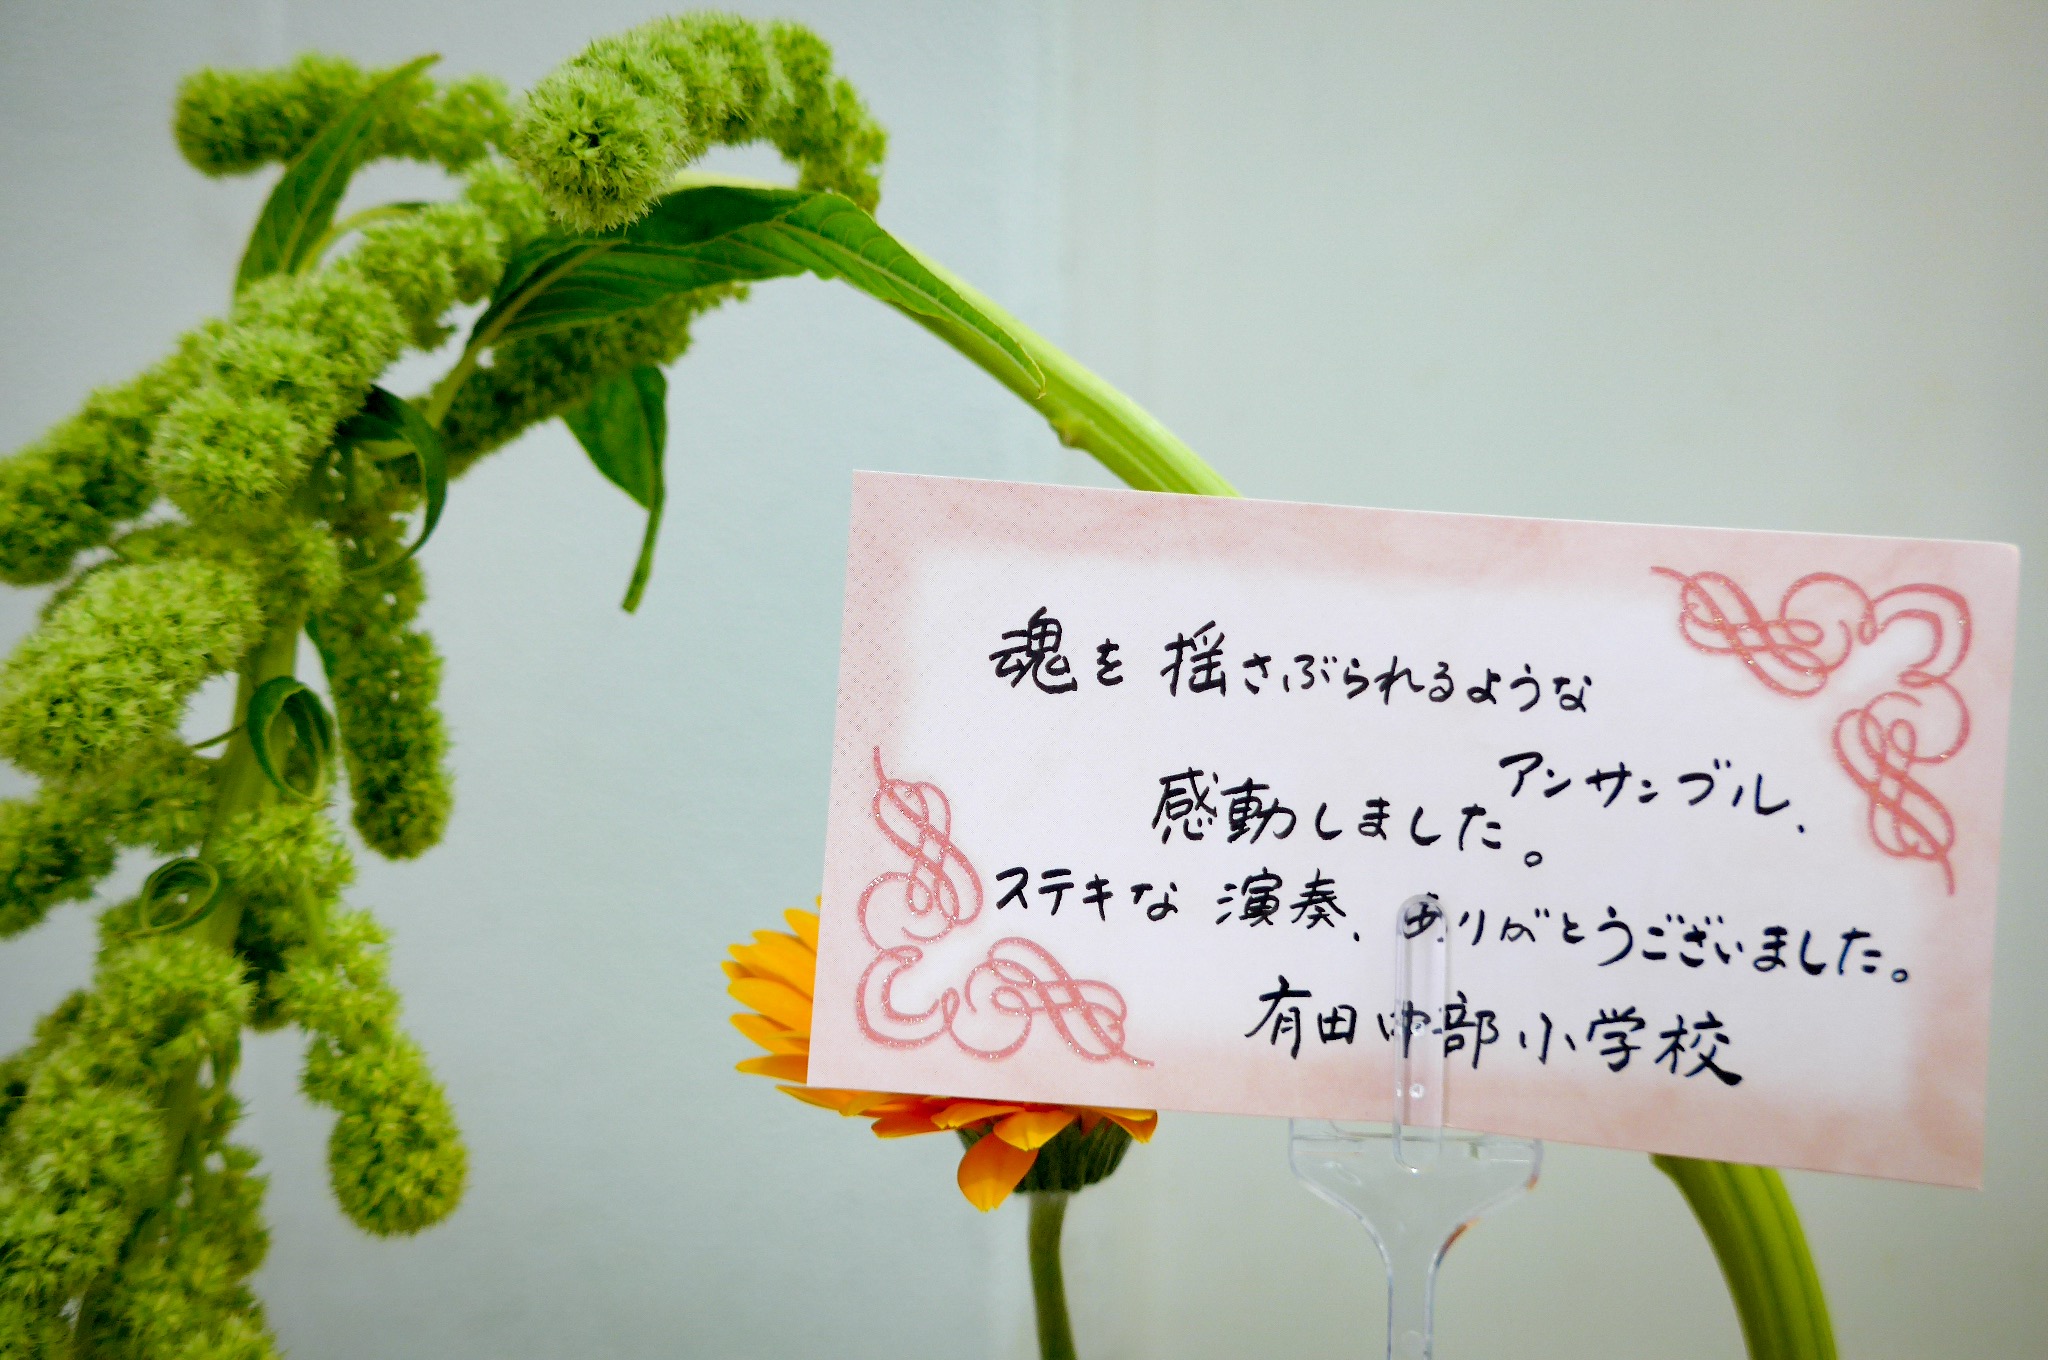 魂を揺さぶられるような
アンサンブル、
感動しました。
ステキな演奏、ありがとうございました。
有田中部小学校